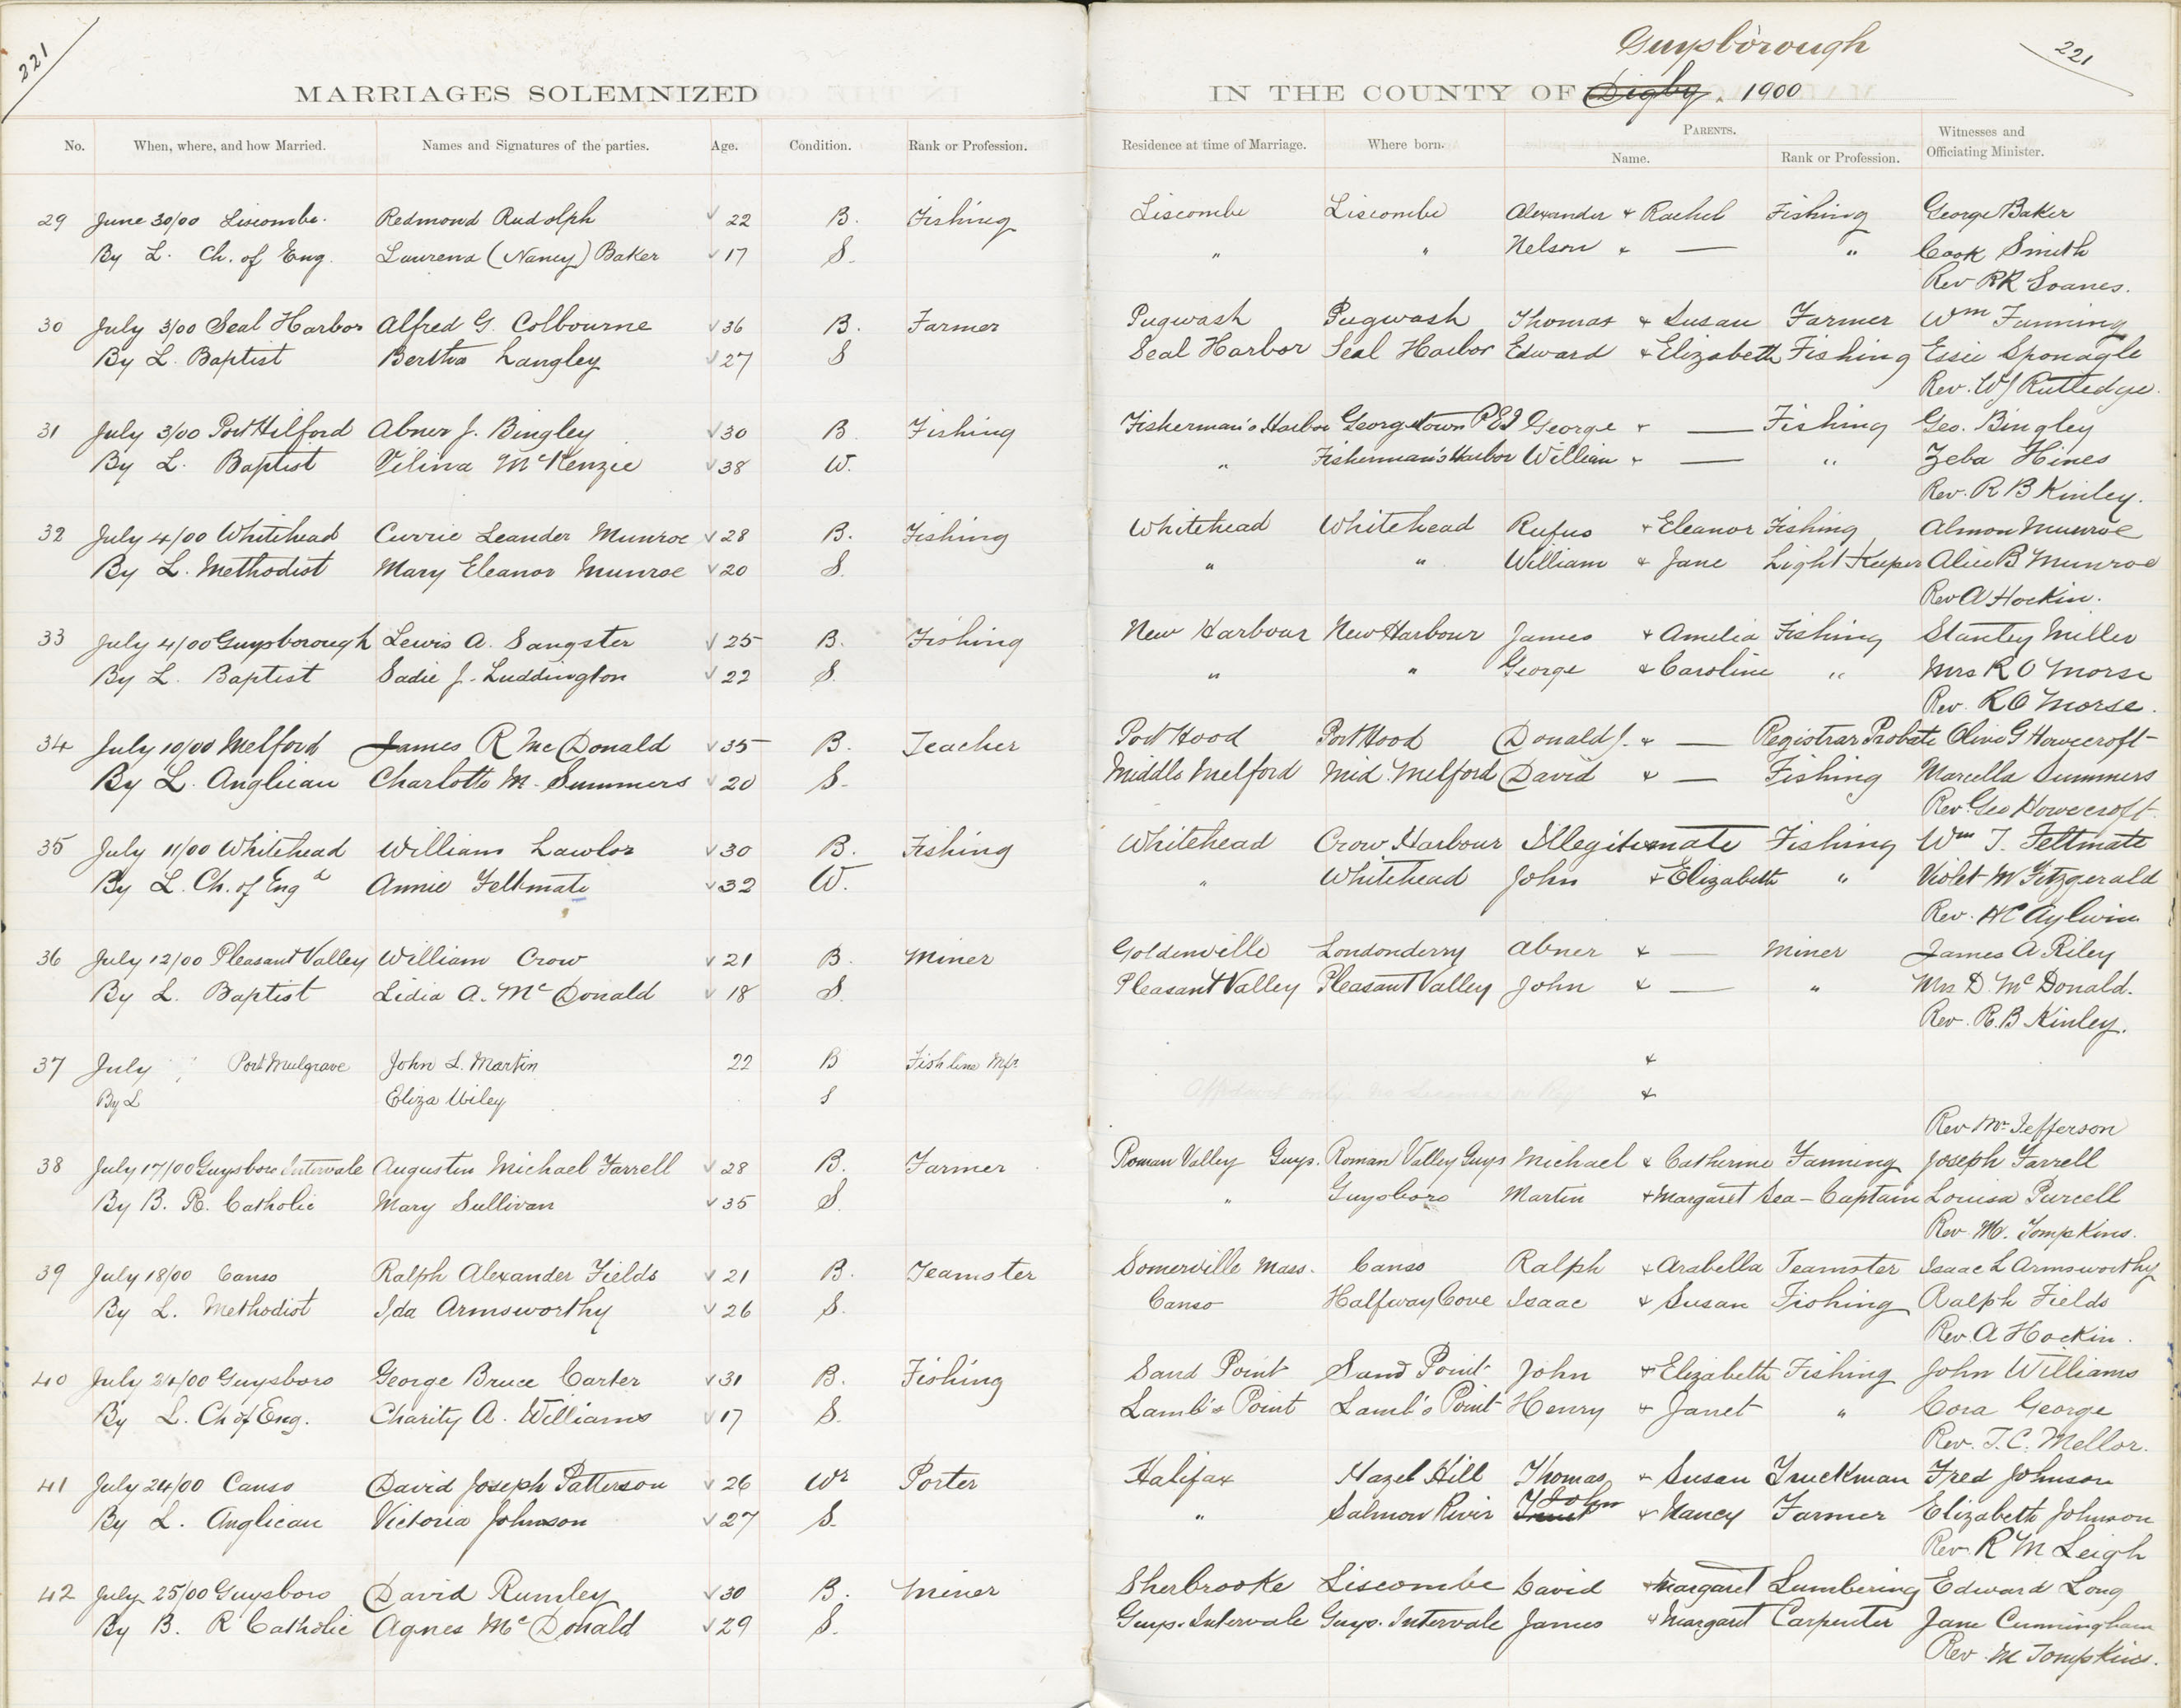 221
MARRIAGES SOLEMNIZED
No. When, where, and how Married. Names and Signatures of the parties. Age. Condition. Rank or Profession.
29 June 30/00 Liscombe. Redmond Rudolph 22 B. Fishing
By L. Ch. of Eng. Laurena (Nancy) Baker 17 S.
30 July 3/00 Seal Harbor Alfred G. Colbourne 36 B. Farmer
By L. Baptist Bertha Langley 27 S
31 July 3/00 Port Hilford Abner J. Bingley 30 B. Fishing
By L. Baptist Vilina McKenzie 38 W.
32 July 4/00 Whitehead Currie Leander Munroe 28 B. Fishing
By L. Methodist Mary Eleanor Munroe 20 S.
33 July 4/00 Guysborough Lewis A. Sangster 25 B. Fishing
By L. Baptist Sadie J. Luddington 22 S.
34 July 10/00 Melford James R McDonald 35 B. Teacher
By L. Anglican Charlotte M. Summers 20 S.
35 July 11/00 Whitehead William Lawlor 30 B. Fishing
By L. Ch. of Engd Annie Feltmate 32 W.
36 July 12/00 Pleasant Valley William Crow 21 B. Miner
By L. Baptist Lidia A. McDonald 18 S.
37 July Port Mulgrave John L. Martin 22 B Fish line Mfr
By L Eliza Wiley S
38 July 17/00 Guysboro Intervale Augustin Michael Farrell 28 B. Farmer
By B. R. Catholic Mary Sullivan 35 S.
39 July 18/00 Canso Ralph Alexander Fields 21 B. Teamster
By L. Methodist Ida Armsworthy 26 S.
40 July 24/00 Guysboro George Bruce Carter 31 B. Fishing
By L. Ch of Eng. Charity A. Williams 17 S.
41 July 24/00 Canso David Joseph Patterson 26 Wr Porter
By L. Anglican Victoria Johnson 27 S.
42 July 25/00 Guysboro David Rumley 30 B. Miner
By B. R Catholic Agnes McDonald 29 S.
Guysborough
221
IN THE COUNTY OF Digby. 1900
Residence at time of Marriage. Where born. PARENTS. Name. Rank or Profession. Witnesses and Officiating Minister.
Liscombe Liscombe Alexander & Rachel Fishing George Baker
" " Nelson & — " Cook Smith
Rev RR Soanes.
Pugwash Pugwash Thomas & Susan Farmer Wm Funning
Seal Harbor Seal Harbor Edward & Elizabeth Fishing Essie Sponagle
Rev. WJ Rutledge.
Fisherman's Harbor Georgetown PEI George & — Fishing Geo. Bingley
" Fisherman's Harbor William & — " Zeba Hines
Rev. R B Kinley.
Whitehead Whitehead Rufus & Eleanor Fishing Almon Munroe
" " William & Jane Light Keeper Alice B Munroe
Rev A Hockin.
New Harbour New Harbour James & Amelia Fishing Stanley Miller
" " George & Caroline " Mrs R O Morse
Rev. R O Morse.
Port Hood Port Hood Donald J. & — Registrar Probate Olive G Howcroft
Middle Melford Mid. Melford David & — Fishing Marcella Summers
Rev Geo Howcroft.
Whitehead Crow Harbour Illegitimate Fishing Wm T. Feltmate
" Whitehead John & Elizabeth " Violet M Fitzgerald
Rev. HC Aylwin
Goldenville Londonderry Abner & — Miner James A Riley
Pleasant Valley Pleasant Valley John & — " Mrs D. McDonald.
Rev. R. B Kinley.
&
Affidavit only no License &
Rev Mr. Jefferson
Roman Valley Guys. Roman Valley Guys Michael & Catherine Fanning Joseph Farrell
" Guysboro Martin & Margaret Sea-Captain Louisa Purcell
Rev. M. Tompkins.
Somerville Mass. Canso Ralph & Arabella Teamster Isaac L Armsworthy
Canso Halfway Cove Isaac & Susan Fishing Ralph Fields
Rev. A Hockin.
Sand Point Sand Point John & Elizabeth Fishing John Williams
Lamb's Point Lamb's Point Henry & Janet " Cora George
Rev. T. C. Mellor.
Halifax Hazel Hill Thomas & Susan Truckman Fred Johnson
" Salmon River John & Nancy Farmer Elizabeth Johnson
Rev. R M Leigh
Sherbrooke Liscombe David & Margaret Lumbering Edward Long
Guys. Intervale Guys. Intervale James & Margaret Carpenter Jane Cunningham
Rev. M Tompkins.